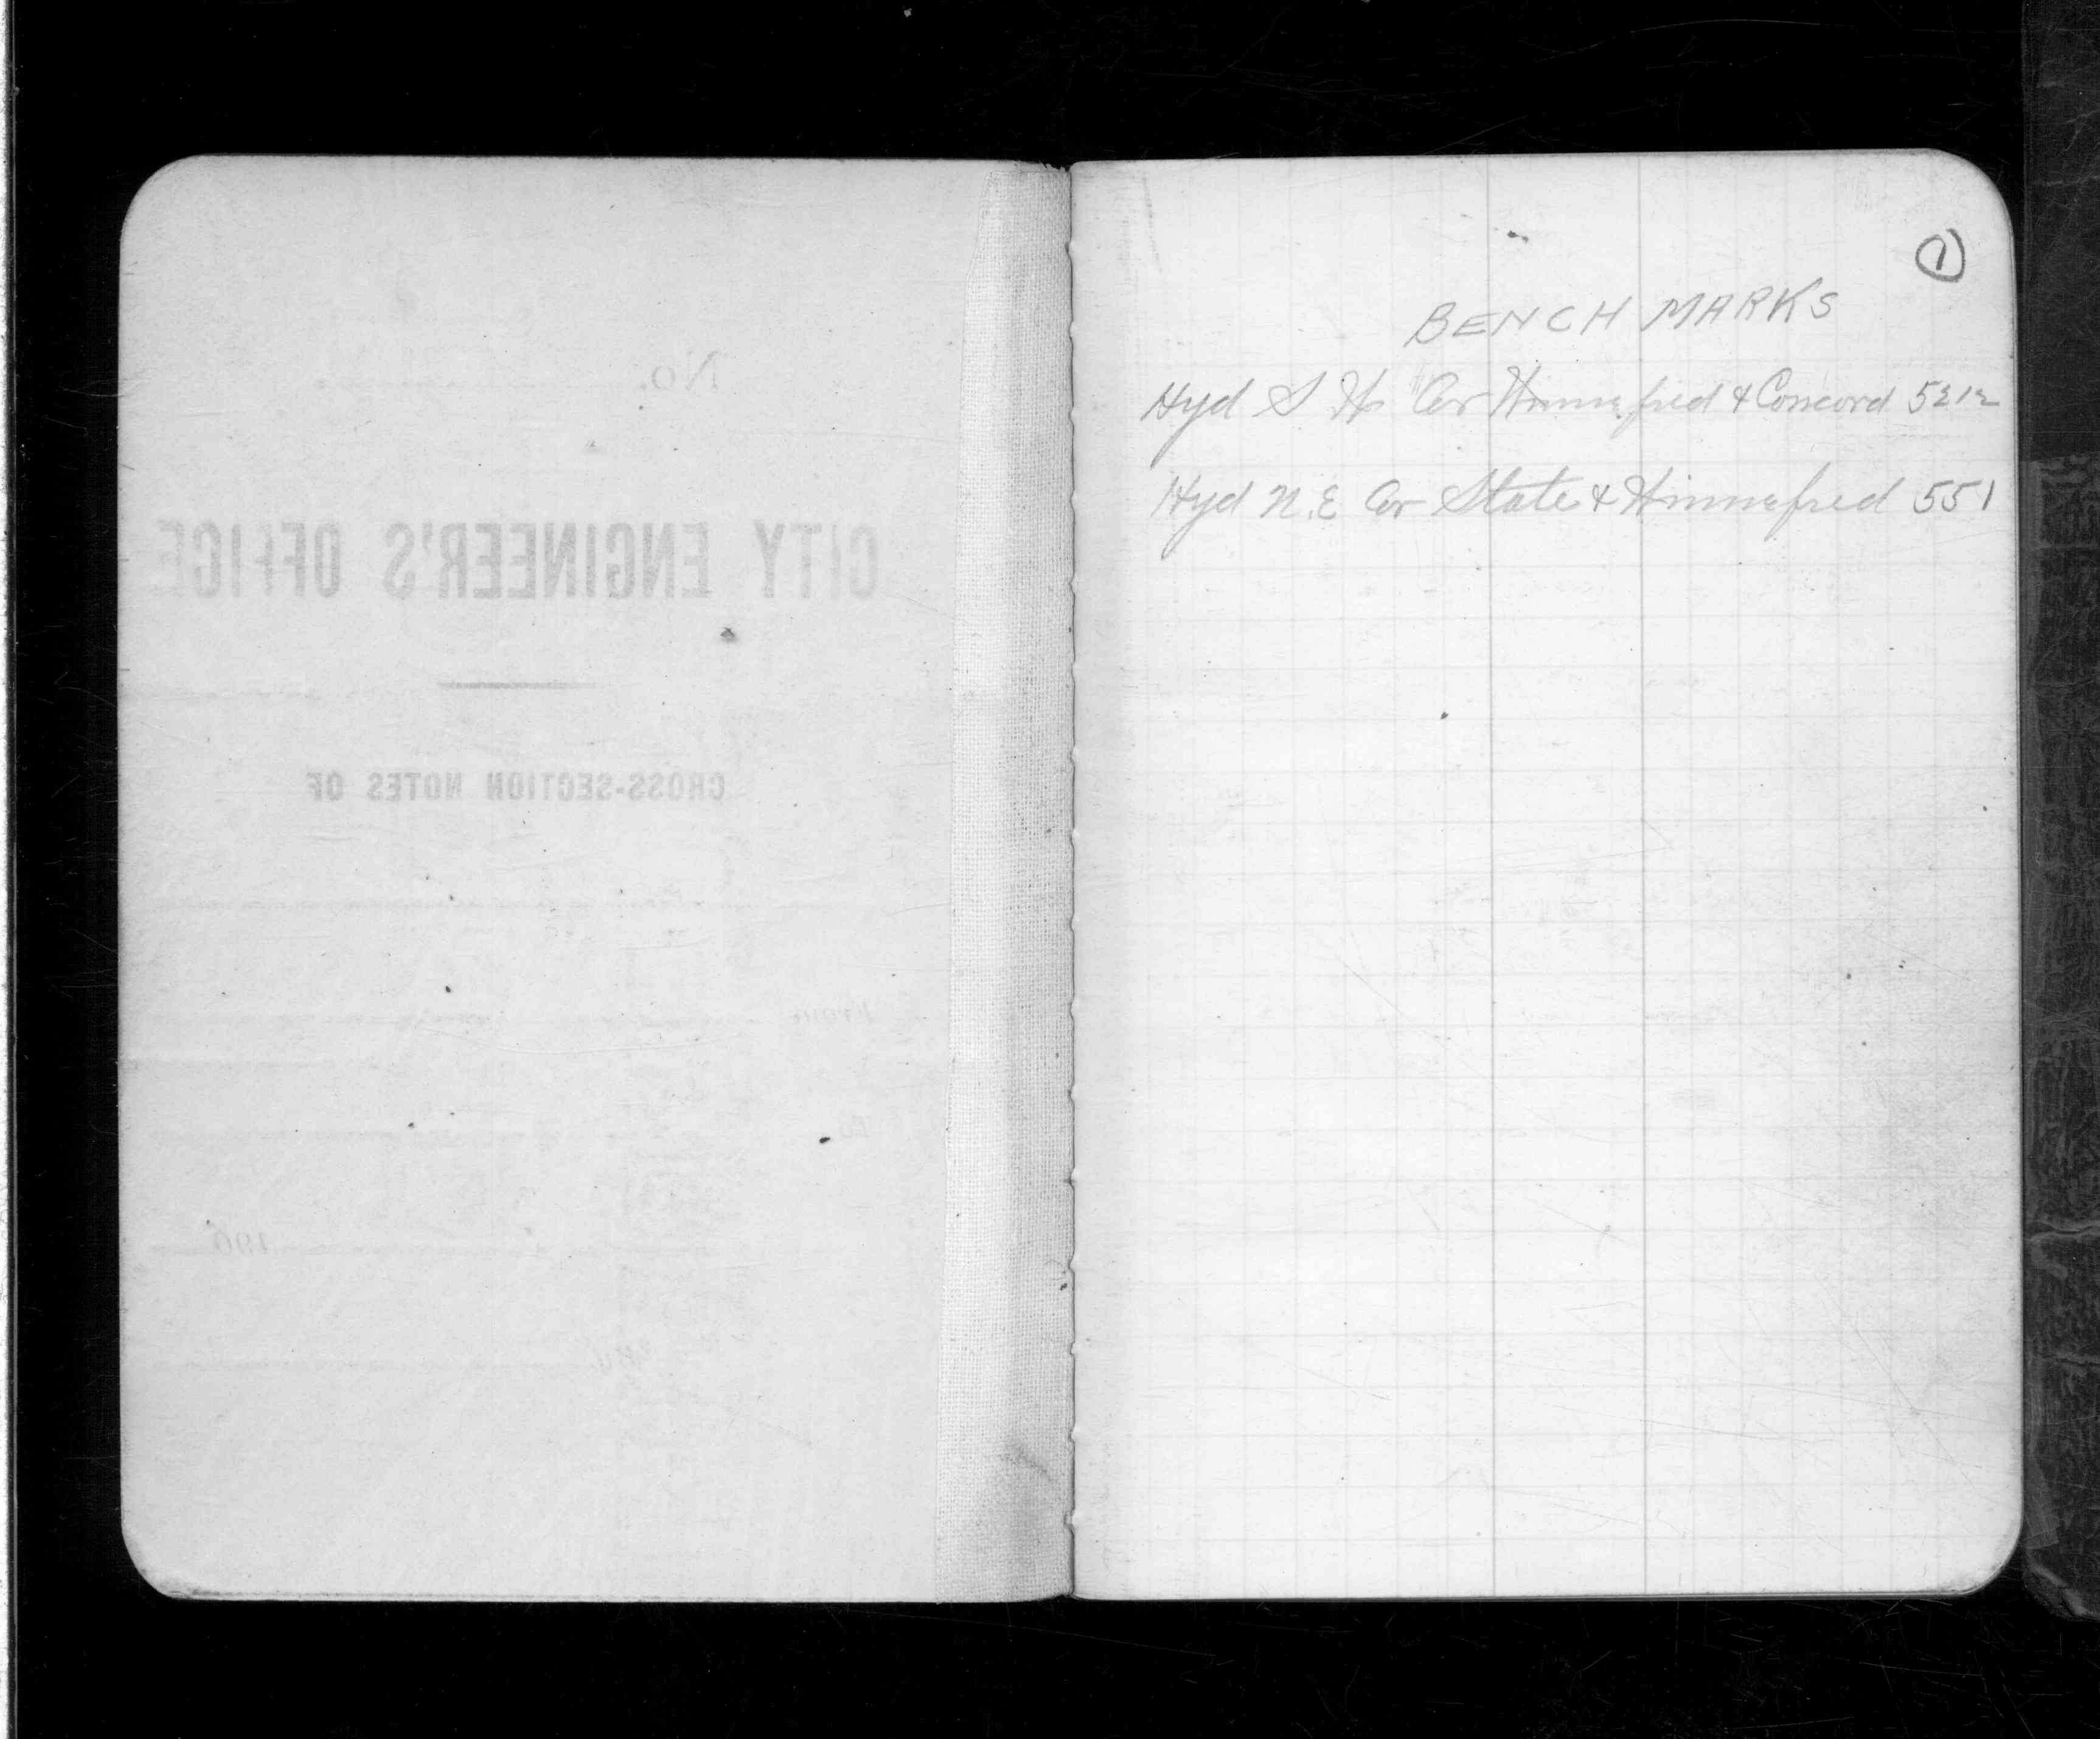 No.
CITY ENGINEER'S OFFICE
CROSS-SECTION NOTES OF
From
to
190
1
BENCH MARKS
Hyd S W Cor Winnefred & Concord 5212
Hyd N.E Cor State & Winnefred 551